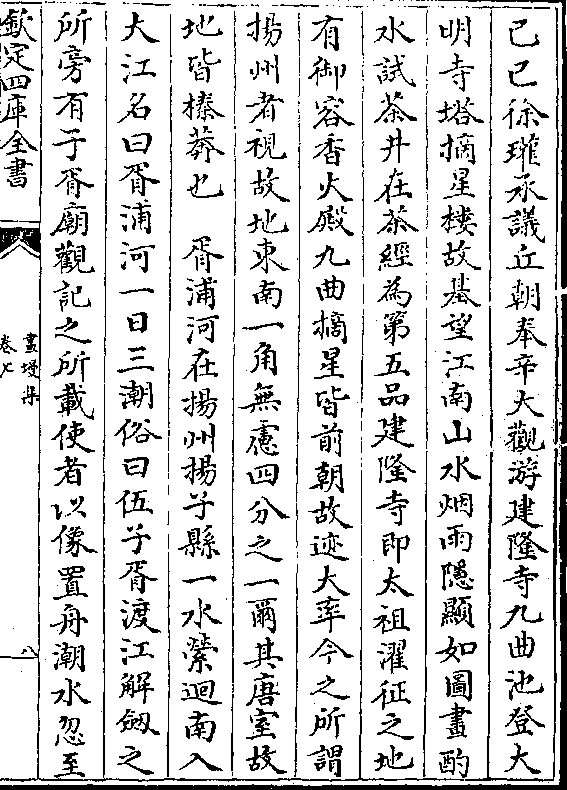 己巳徐璀承議丘朝奉辛大觀游建隆寺九曲池登大
明寺塔摘星樓故基望江南山水烟雨隱顯如圖畫酌
水試茶井在茶經為第五品建隆寺即太祖濯征之地
有御容香火殿九曲摘星皆前朝故迹大率今之所謂
揚州者視故地東南一角無慮四分之一爾其唐室故
地皆榛莽也　胥浦河在揚州揚子縣一水縈迴南入
大江名曰胥浦河一日三潮俗曰伍子胥渡江解劔之
所旁有子胥廟觀記之所載使者以像置舟潮水忽至
欽定四庫全書
畫墁集
卷七
八